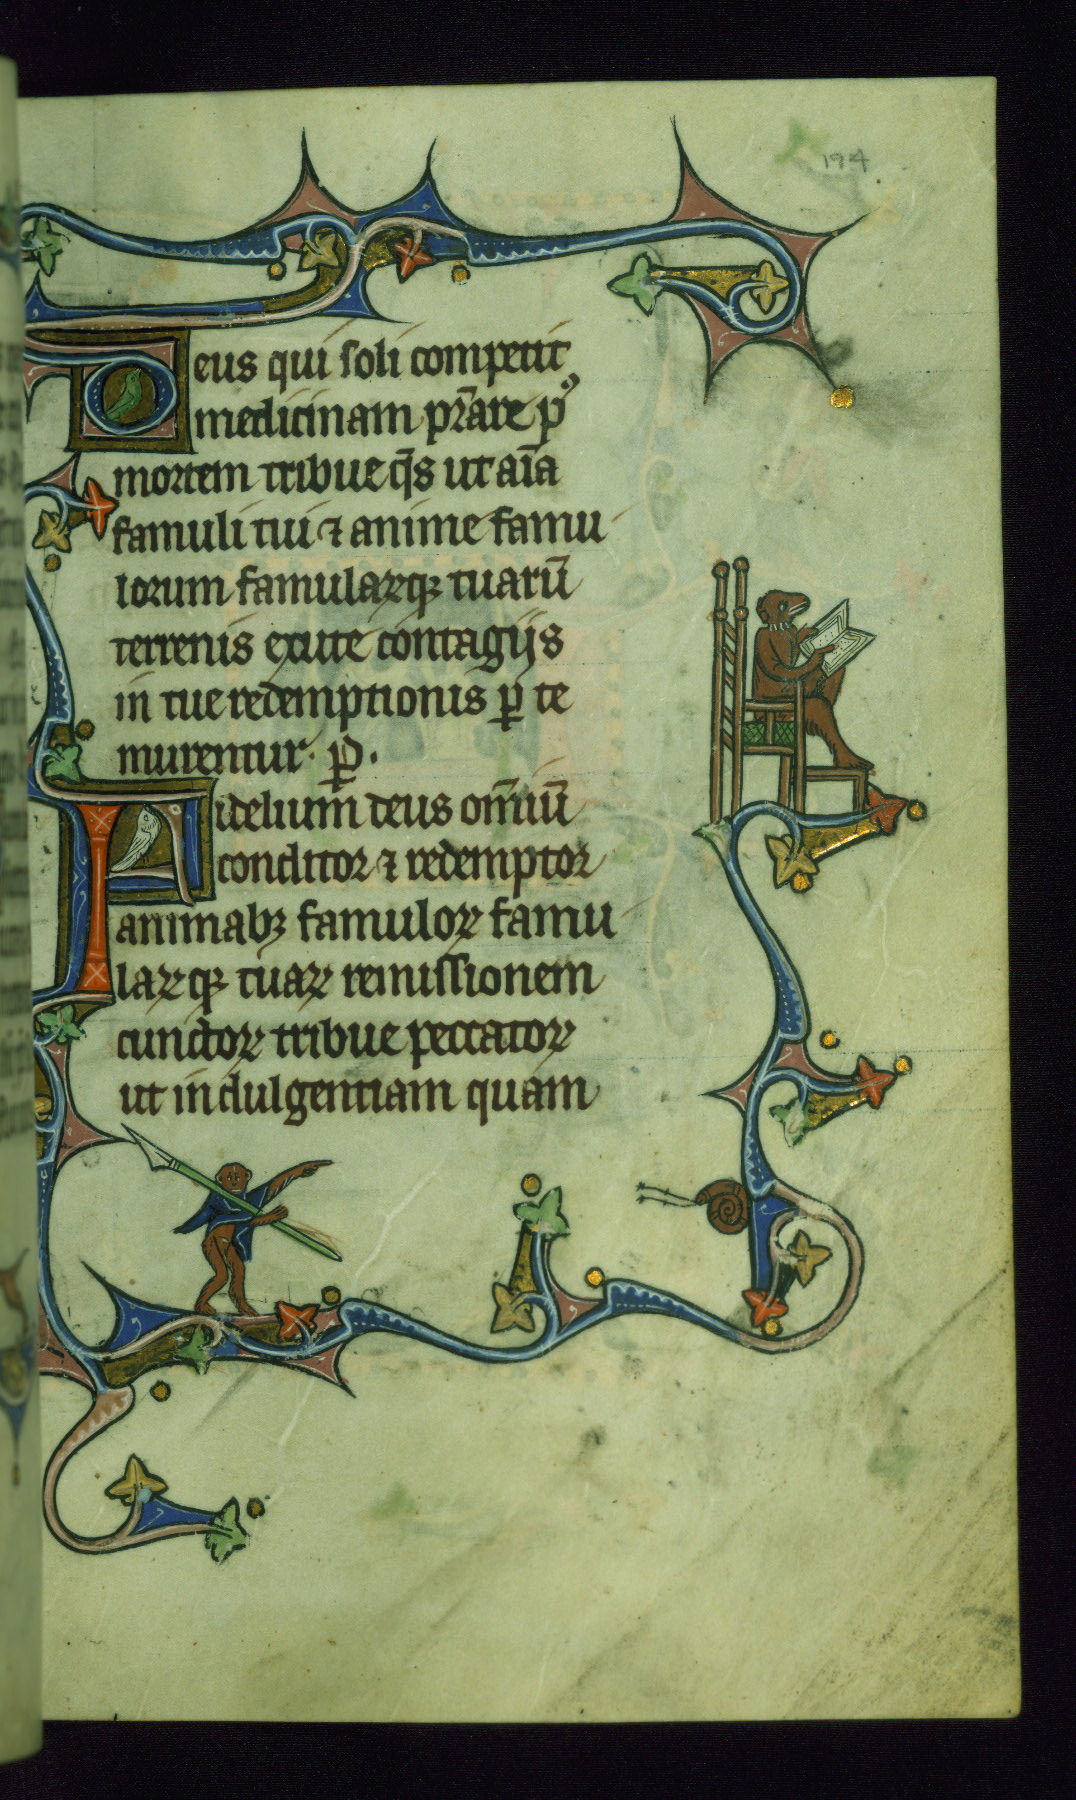 194
Deus qui soli competit
medicinam p̄rare pꝰ
mortem tribue q̄s ut aīa
famuli tui ⁊ anime famu
lorum famulaꝝqꝫ tuarū
terrenis exute contagijs
in tue redemptionis ꝑte
murentur. ꝑ.
Fidelium deus om̄iū
conditor ⁊ redemptor
animabꝫ famuloꝝ famu
laꝝqꝫ tuaꝝ remissionem
cunctoꝝ tribue peccatoꝝ
ut indulgentiam quam